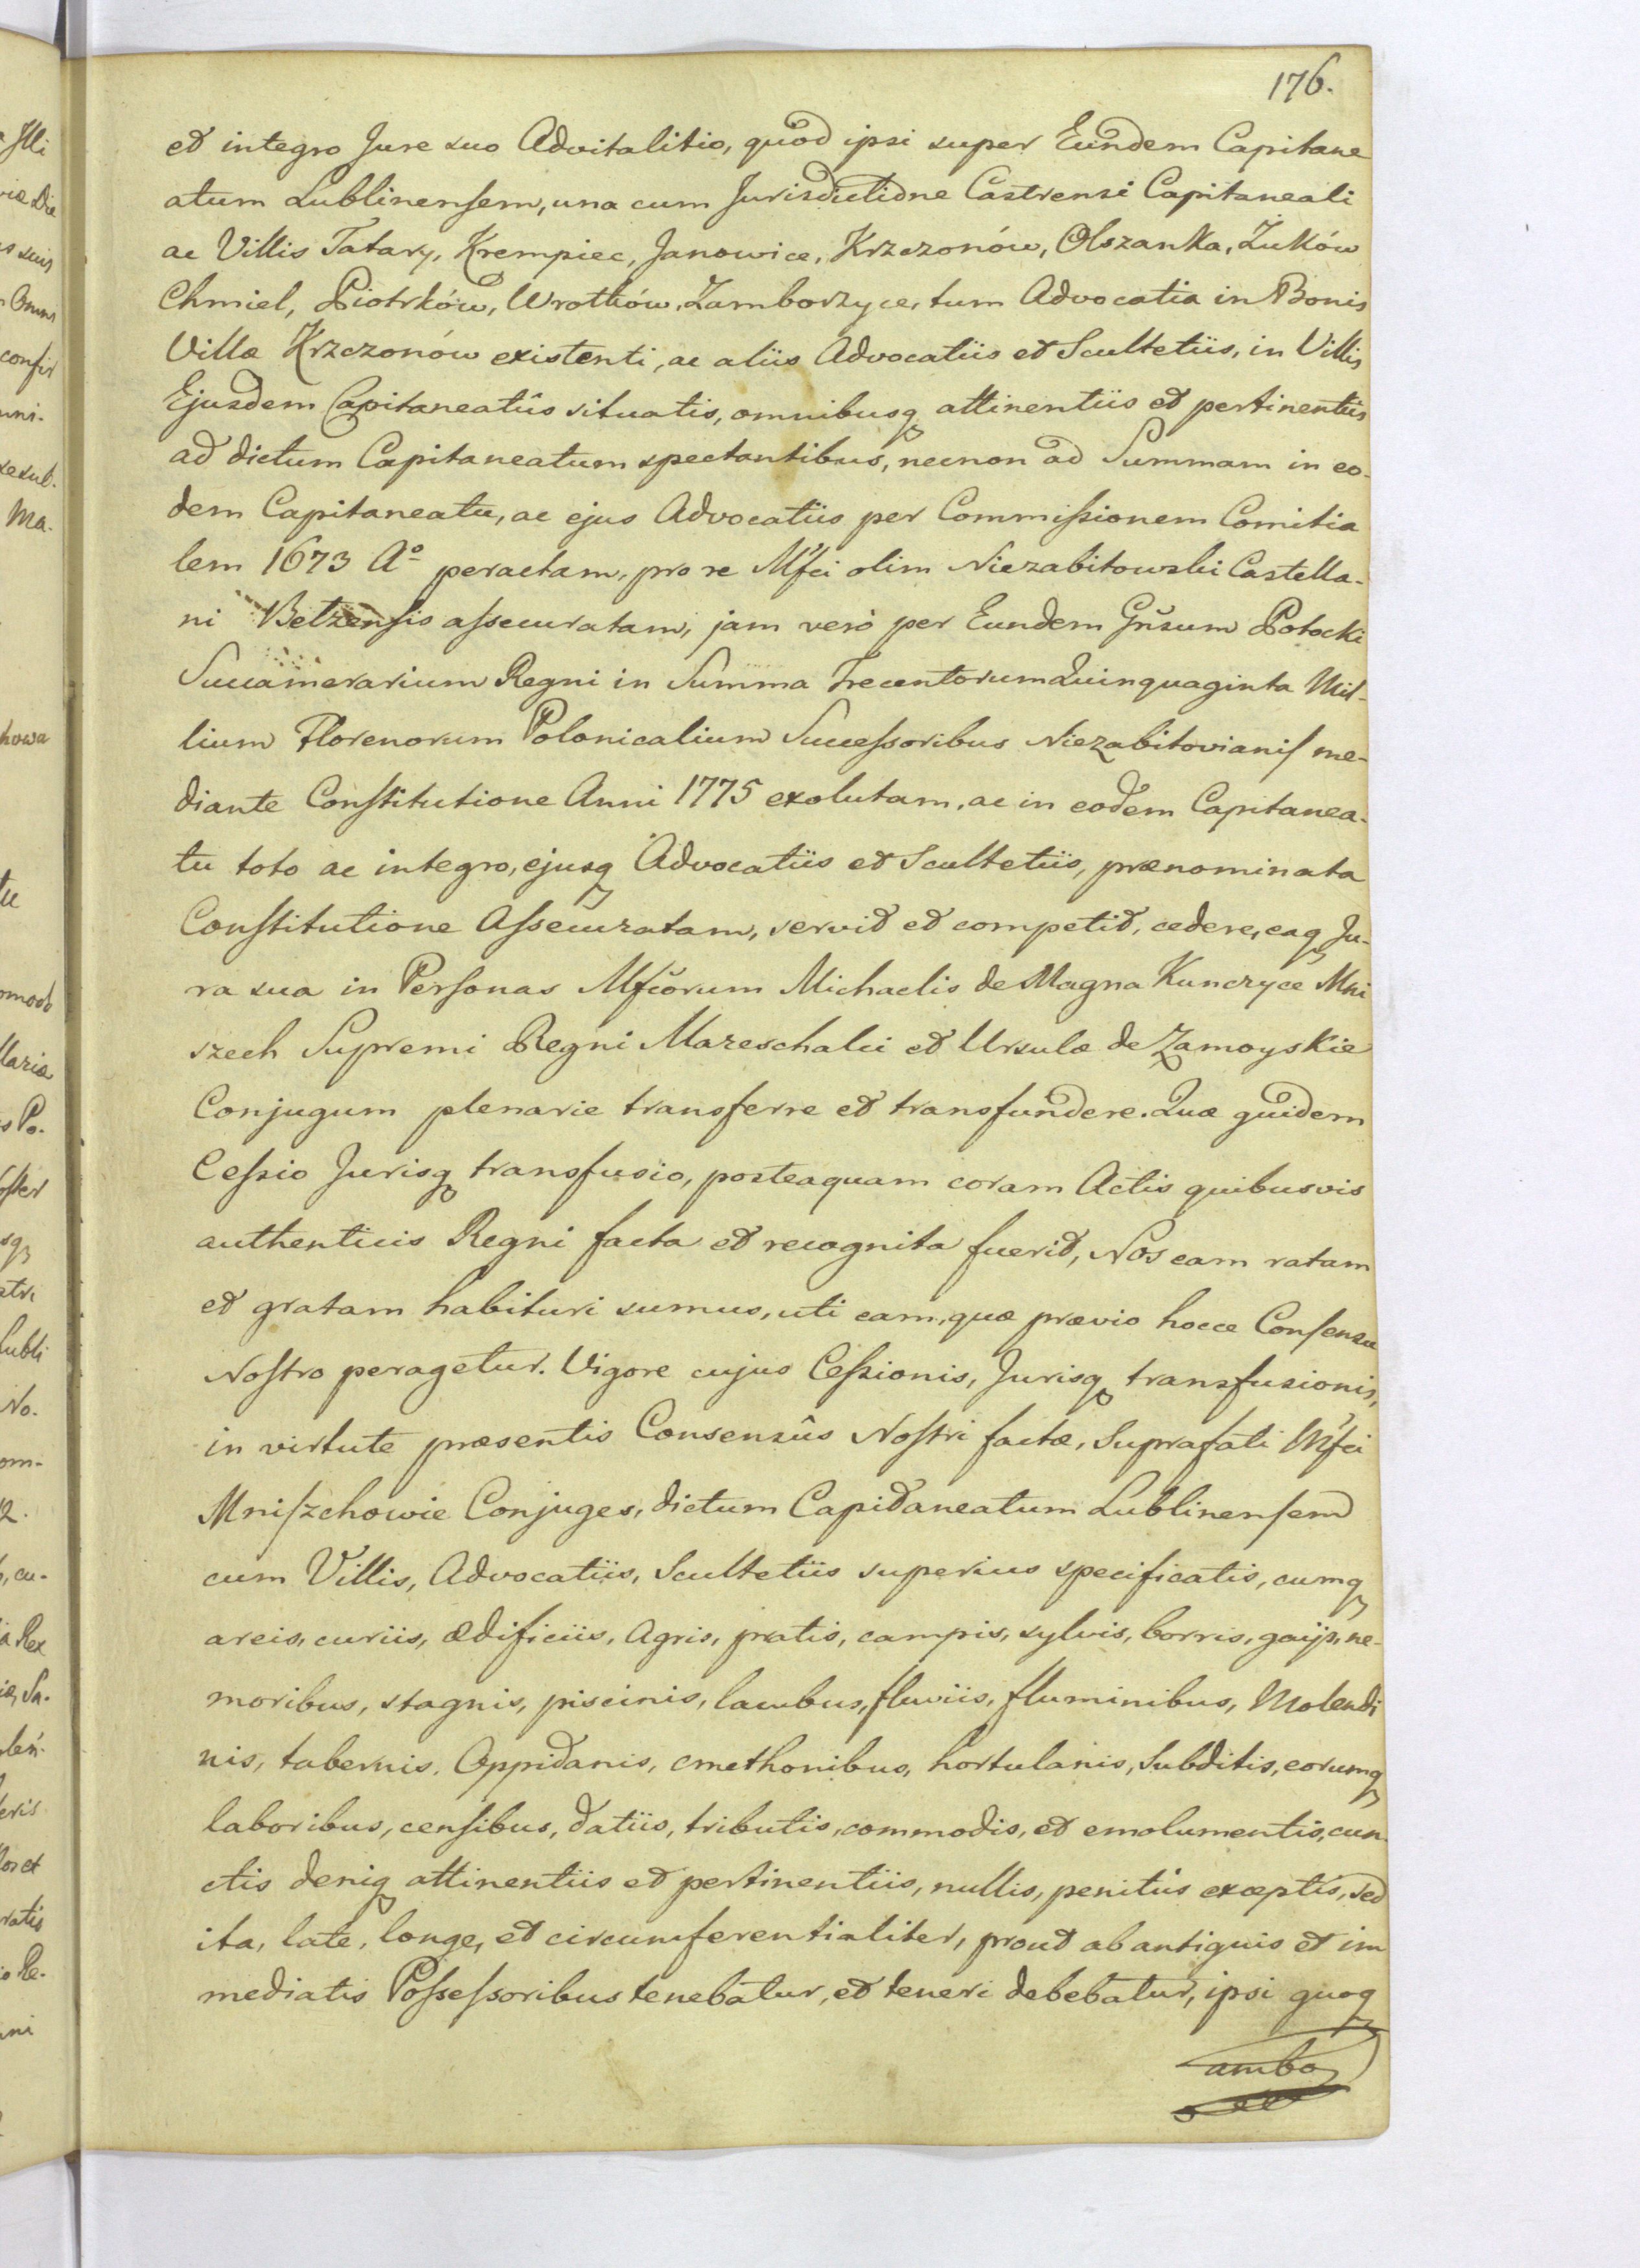 176.
et integro Jure suo Advitalitio, quod ipsi super Eundem Capitane
atum Lublinensem, una cum Jurisdictione Castrensi Capitaneali
ac Villis Tatary, Krempiec, Janowice, Krzczonów, Olszanka, Żuków
Chmiel, Piotrków, Wrotków, Zamborzyce, tum Advocatia in Bonis
Villæ Krzczonów existenti, ac aliis Advocatiis et Scultetiis, in Villis
Ejusdem Capitaneatûs situatis, omnibusq attinentiis et pertinentiis
ad dictum Capitaneatum spectantibus, necnon ad Summam in eo-
dem Capitaneatu, ac ejus Advocatiis per Commissionem Comitia
lem 1673 Aº peractam, pro re Mfci olim Niezabitowski Castella-
ni Belzensis assecuratam, jam verò per Eundem Gnsum Potocki
Succamerarium Regni in Summa Trecentorum Quinquaginta Mil-
lium Florenorum Polonicalium Successoribus Niezabitovianis me-
diante Constitutione Anni 1775 exolutam, ac in eodem Capitanea-
tu toto ac integro, ejusq Advocatiis et Scultetiis, prænominata
Constitutione Assecuratam, servit et competit, cedere, eaq Ju-
ra sua in Personas Mficorum Michaelis de Magna Kunczyce Mni
szech Supremi Regni Mareschalci et Ursulæ de Zamoyskie
Conjugum plenarie transferre et transfundere. Quæ quidem
Cessio Jurisq transfusio, posteaquam coram Actis quibusvis
authenticis Regni facta et recognita fuerit, Nos eam ratam
et gratam habituri sumus, uti eam, quæ prævio hocce Consensu
Nostro peragetur. Vigore cujus Cessionis, Jurisq transfusionis,
in virtute præsentis Consensûs Nostri factæ, Suprafati Mfci
Mniszchowie Conjuges, dictum Capitaneatum Lublinensem
cum Villis, Advocatiis, Scultetiis superius specificatis, cumq
areis, curiis, ædificiis, Agris, pratis, campis, sylvis, borris, gaijs, ne-
moribus, stagnis, piscinis, lacubus, fluviis, fluminibus, Molendi
nis, tabernis, Oppidanis, cmethonibus, hortulanis, Subditis, eorumq
laboribus, censibus, datiis, tributis, commodis, et emolumentis, cun-
ctis deniq attinentiis et pertinentiis, nullis, penitus exceptis, sed
ita, late, longe, et circumferentialiter, prout ab antiquis et im
mediatis Possessoribus tenebatur, et teneri debebatur, ipsi quoq
ambo